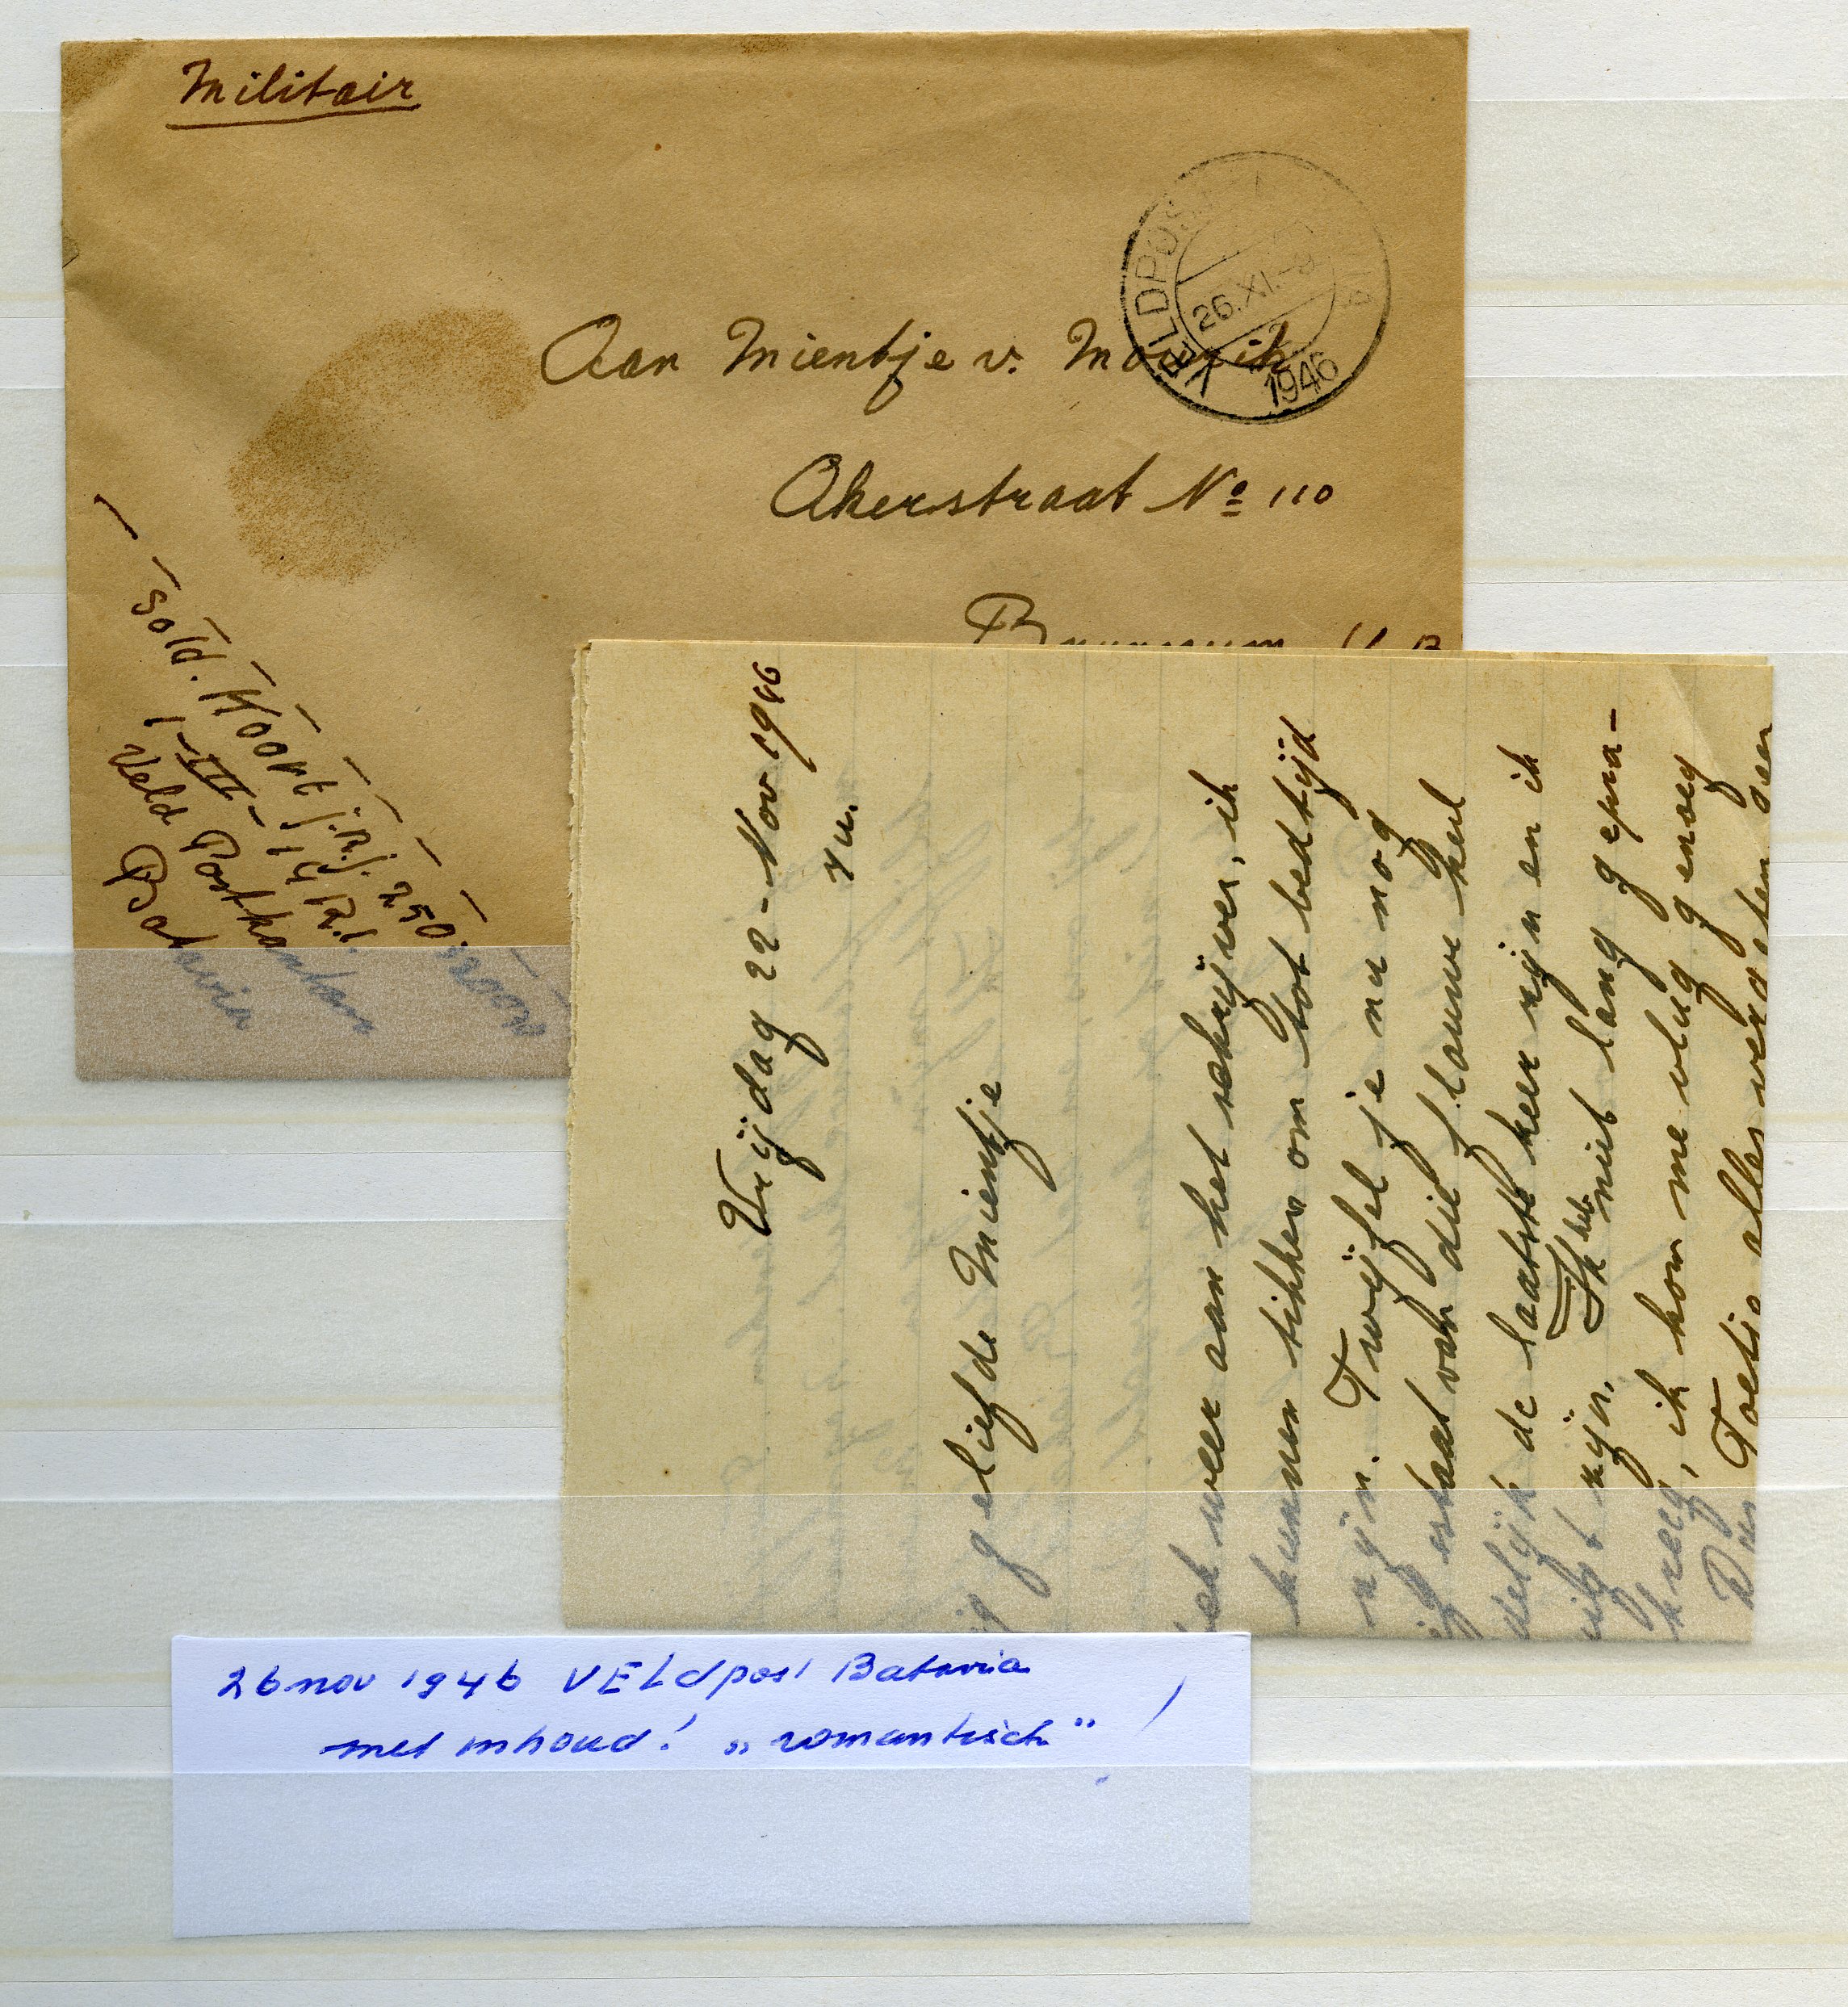 Militair
VELDPOS
26.XI.-9
1946
Aan Mientje v.
Akerstraat Nº 110
sold. Koort j.n.j. 250
1-III-14 R.I.
Veld Postkantoor
Batavia
Vrijdag 22-Nov 1946
geliefde Mientje
weer aan het schrijven, ik
kunnen tikken om tot bedtijd
zijn. Twijfel je nu nog
dat dit flauwe
delijk de laatste keer zijn en ik
zijn. Ik heb niet lang gepra-
kreeg, ik kom me vlug genoeg
Dus Toetie alles vergeten
26 nov 1946 VELdpost Batavia
met inhoud! „romantisch"